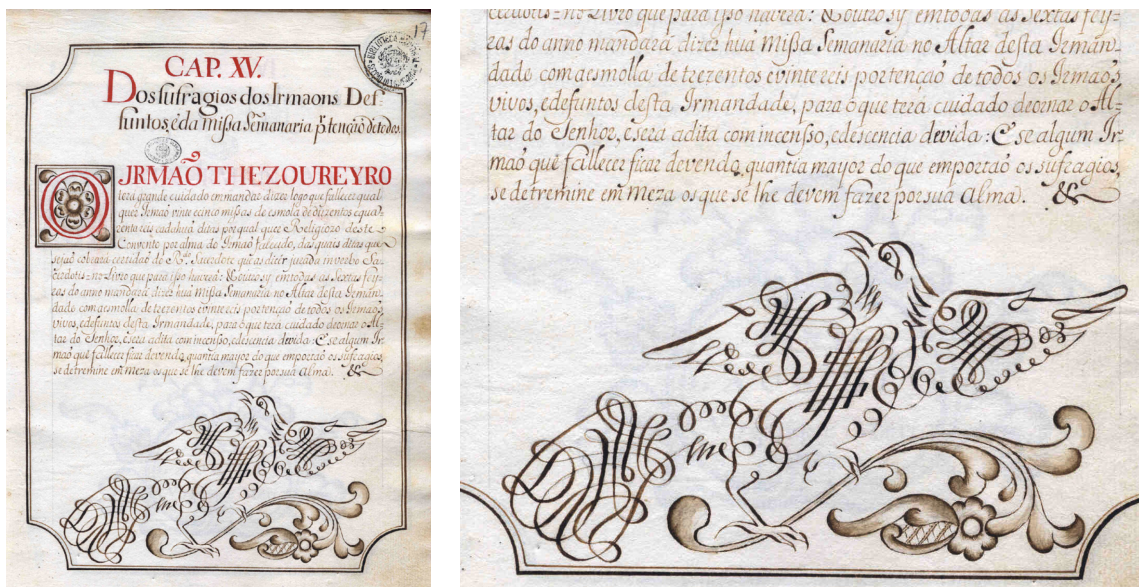 17
CAP. XV.
Dos sufragios dos Irmaons Def=
funtos, e da mißa Semanaria pr tenção de todos.
O JRMAÕ THEZOUREYRO
tera grande cuidado em mandar dizer logo que fallecer qual
quer Irmaõ vinte e cinco mißas de esmola de duzentos e qua=
renta reis cada huã ditas por qual quer Religiozo deste
Convento por alma do Irmaõ falecido, das quais ditas que
sejaõ cobrará certidaõ do R.do Sacerdote que as dicer jurada in verbo Sa=
cerdotis = no Livro que para ißo haverá: & outro sy em todas as Sextas fey=
ras do anno mandará dizer huã Mißa Semanaria no Altar desta Irman=
dade com a esmolla de trezentos e vinte reis por tençaõ de todos os Irmaõs
vivos, e defuntos desta Irmandade, para o que terá cuidado de ornar o Al=
tar do Senhor, e será a dita com incenßo, e descencia devida: E se algum Ir=
maõ que fallecer ficar devendo quantia mayor do que emportaõ os sufragios,
se detremine em Meza os que se lhe devem fazer por sua Alma. &
cerdotis = no Livro que para ißo haverá: & outro sy em todas as Sextas fey=
ras do anno mandará dizer huã Mißa Semanaria no Altar desta Irman=
dade com a esmolla de trezentos e vinte reis por tençaõ de todos os Irmaõs
vivos, e defuntos desta Irmandade, para o que terá cuidado de ornar o Al=
tar do Senhor, e será a dita com incenßo, e descencia devida: E se algum Ir=
maõ que fallecer ficar devendo quantia mayor do que emportaõ os sufragios,
se detremine em Meza os que se lhe devem fazer por sua Alma. &